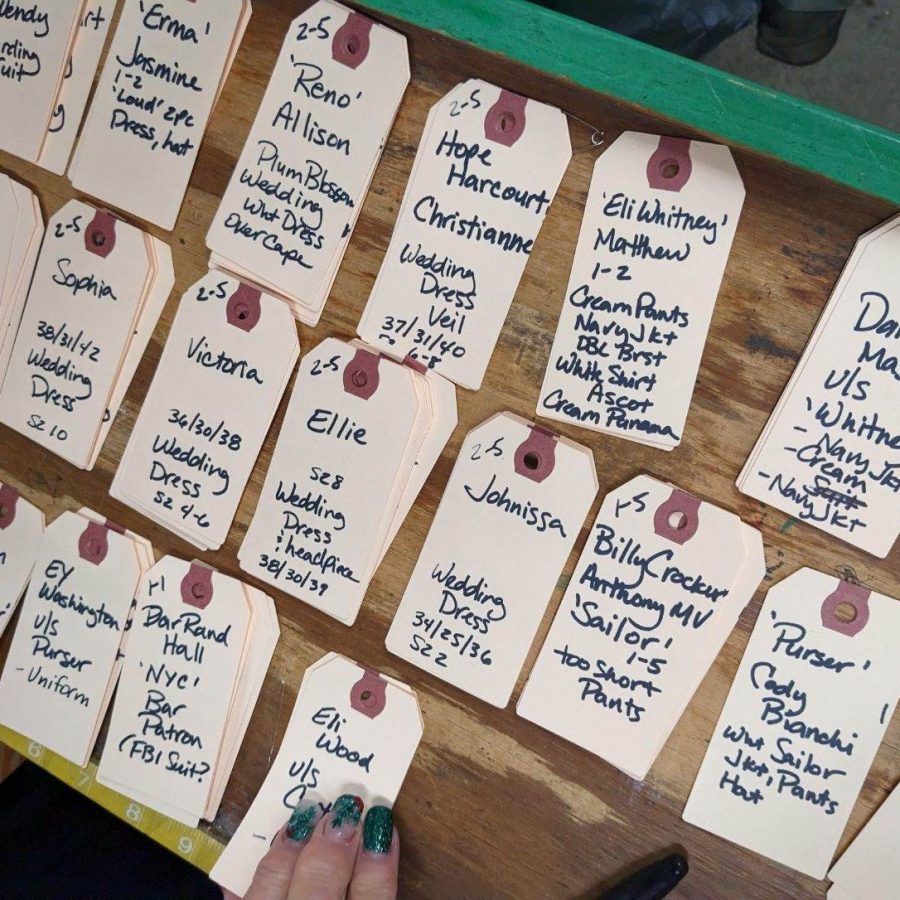 rding
'Erma'
Jasmine
1-2
'Loud' 2pc
Dress, hat
2-5
'Reno'
Allison
Plum Blossom
Wedding
Wht Dress
Over Cape
2-5
Hope
Harcourt
Christianne
Wedding
Dress
Veil
37/31/40
6-8
'Eli Whitney'
Matthew
1-2
Cream Pants
Navy Jkt
DBL Brst
White Shirt
Ascot
Cream Panama
Da
Ma
u/s
'Whitne
- Navy Jkt
- Cream
- Navy Jkt
2-5
Sophia
38/31/42
Wedding
Dress
Sz 10
2-5
Victoria
36/30/38
Wedding
Dress
Sz 4-6
2-5
Ellie
Sz 8
Wedding
Dress
& headpiece
38/30/39
2-5
Johnissa
Wedding
Dress
34/25/36
Sz 2
1-5
Billy Crocker
Anthony MV
'Sailor'
1-5
too short
Pants
'Purser'
Cody
Bianchi
Wht Sailor
Jkt, Pants
Hat
EY
Washington
u/s
Purser
- Uniform
DarRand
Hall
'NYC'
Bar
Patron
(FBI Suit?
Eli
Wood
u/s
6
7
8
9